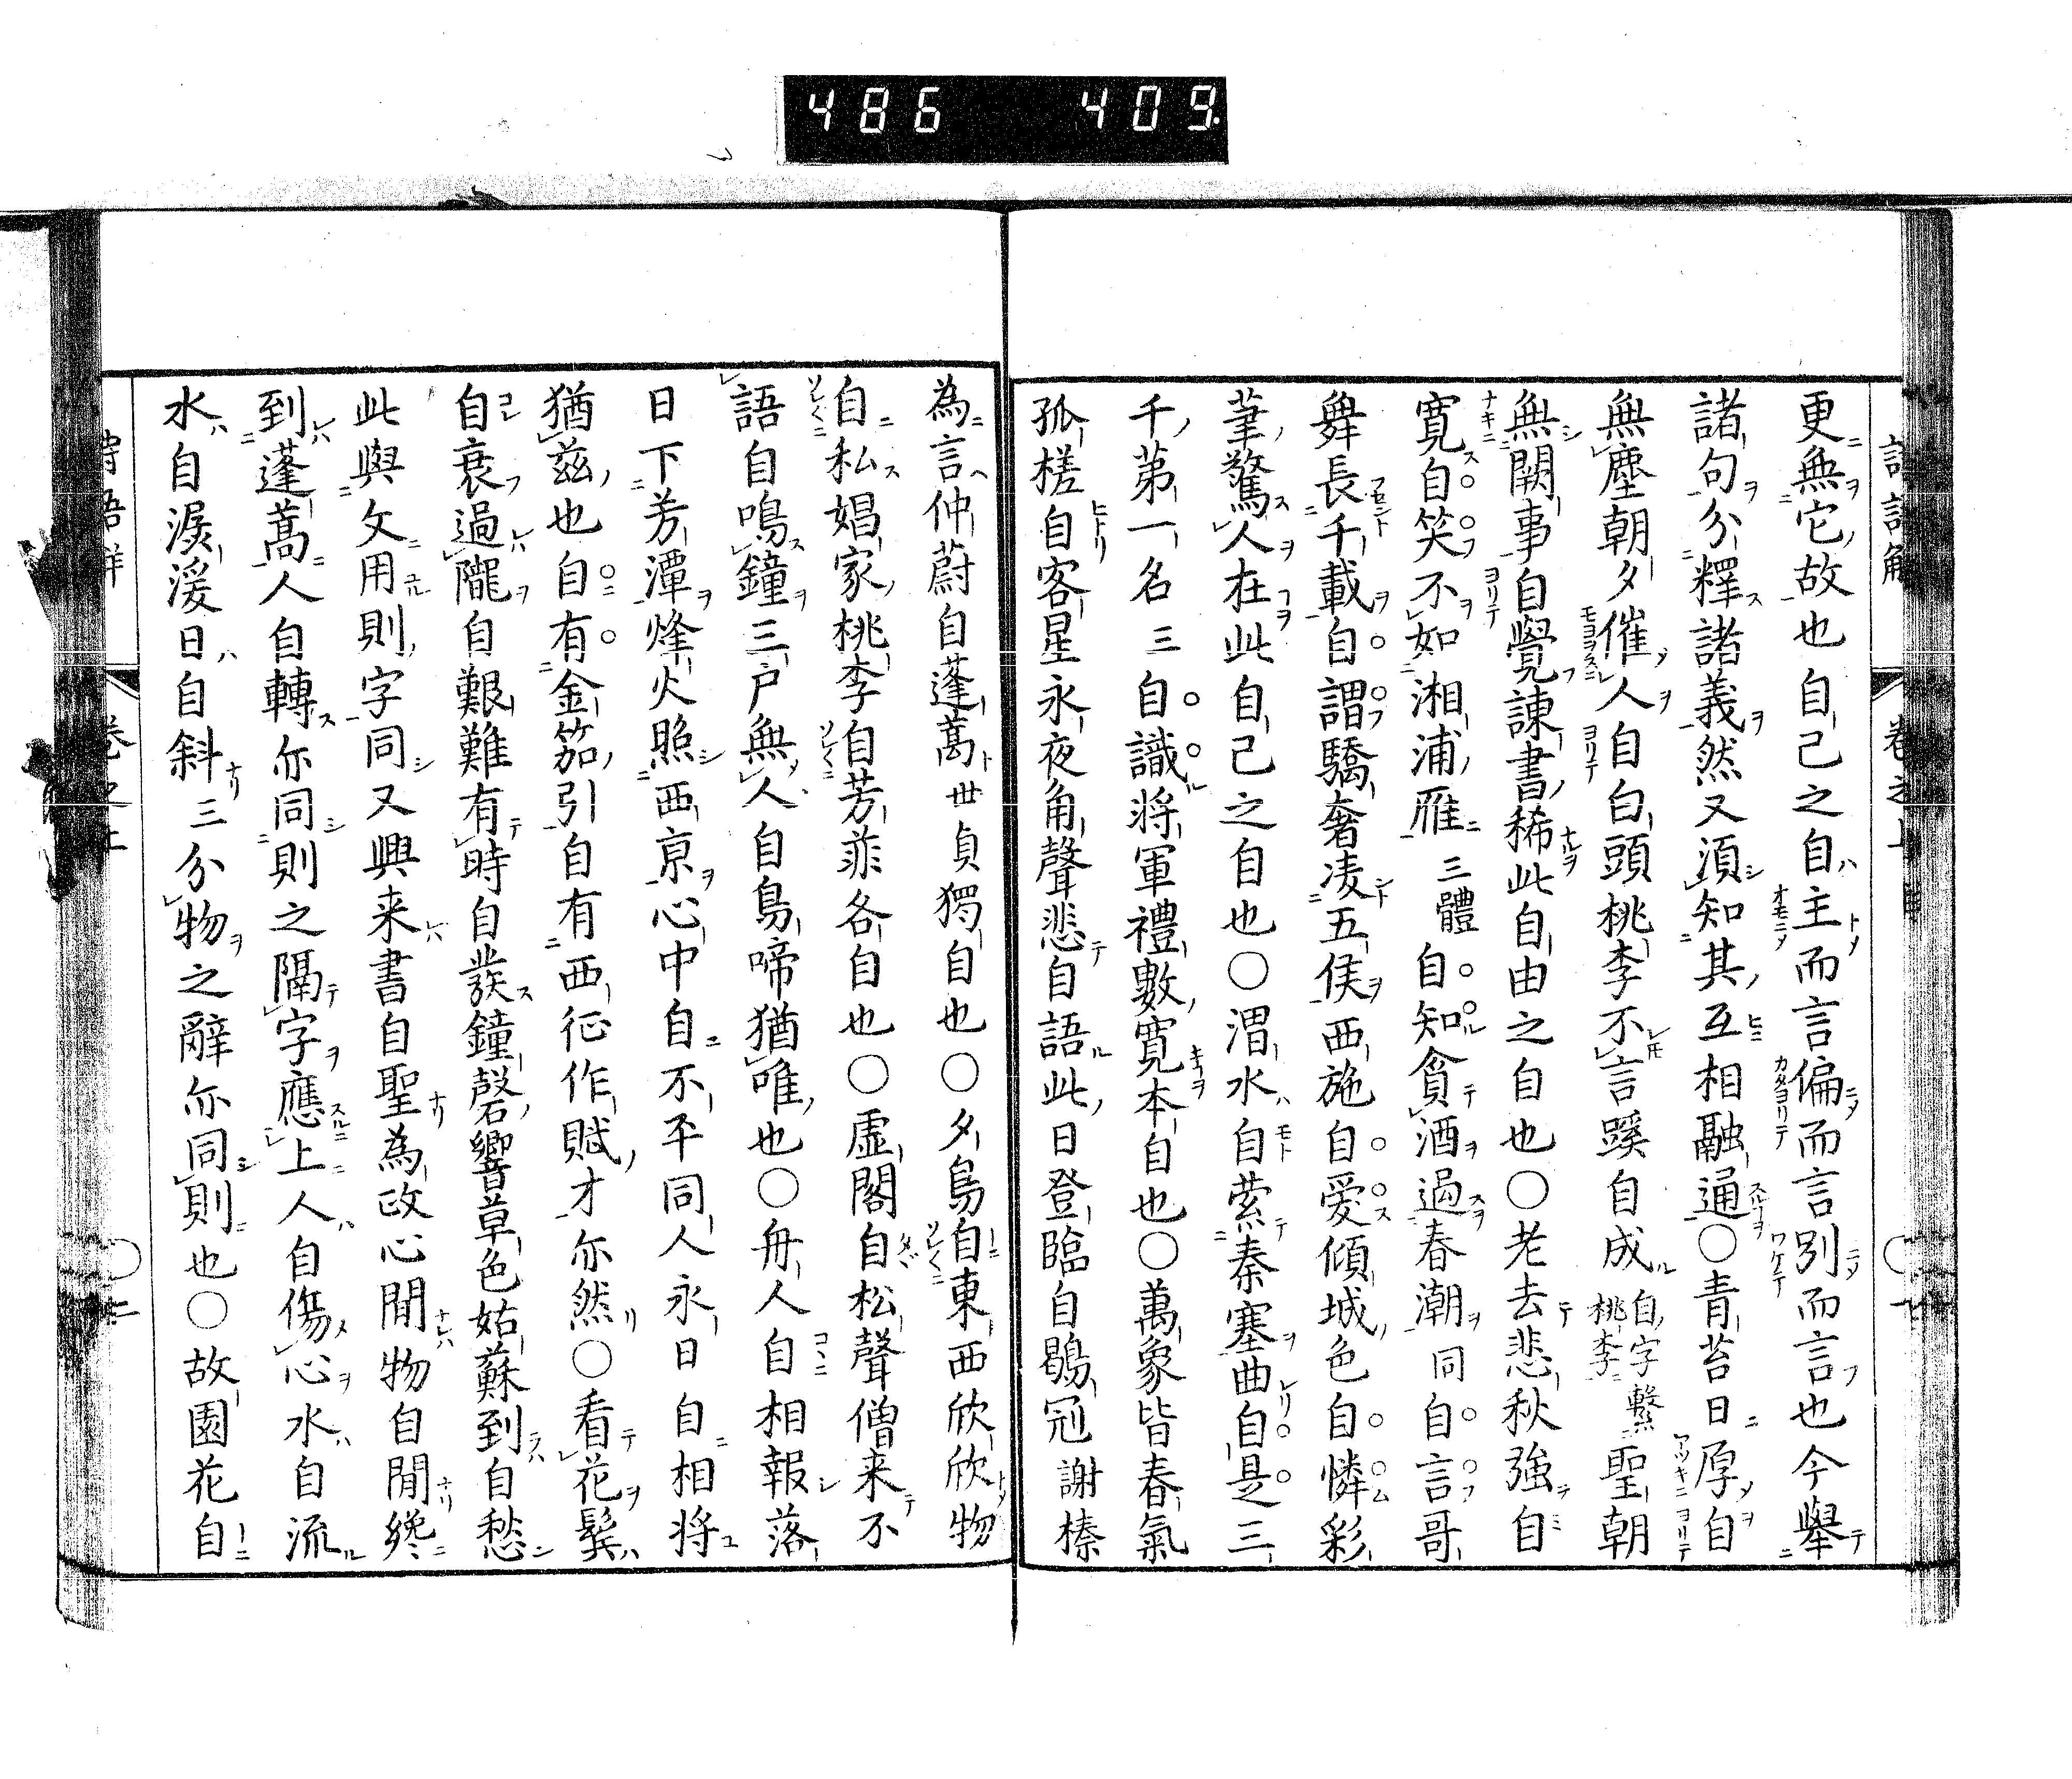 486 409.
更無它故也自己之自主而言偏而言別而言也今舉
諸句分釋諸義然又須知其互相融通○青苔日厚自
無塵朝夕催人自白頭桃李不言蹊自成自字繫桃李聖朝
無闕事自覺諌書稀此自由之自也○老去悲秋強自
寛自笑不如湘浦雁三體自知貪酒過春潮同自言哥
舞長千載自謂驕奢凌五侯西施自愛傾城色自憐彩
筆驚人在此自己之自也○渭水自縈秦塞曲自是三
千第一名三自識將軍禮數寛本自也○萬象皆春氣
孤槎自客星永夜角聲悲自語此日登臨自鶡冠謝榛
為言仲蔚自蓬蒿世貞獨自也○夕鳥自東西欣欣物
自私娼家桃李自芳菲各自也○虚閣自松聲僧来不
語自鳴鐘三戸無人自鳥啼猶唯也○舟人自相報落
日下芳潭烽火照西亰心中自不平同人永日自相将
猶兹也自有金笳引自有西征作賦才亦然○看花鬂
自衰過隴自艱難有時自發鐘磬響草色姑蘇到自愁
此與攵用則字同又興来書自聖為政心閒物自閒纔
到蓬蒿人自轉亦同則之隔字應上人自傷心水自流
水自潺湲日自斜三分物之辭亦同則也○故園花自
卷之上